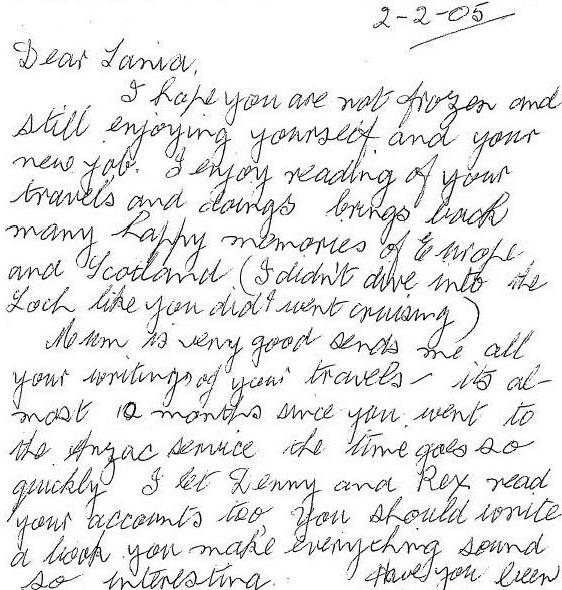 2-2-05
Dear Tania,
I hope you are not frozen and
still enjoying yourself and your
new job. I enjoy reading of your
travels and doings brings back
many happy memories of Europe,
and Scotland (I didn't dive into the
Loch like you did I went cruising)
Mum is very good sends me all
your writings of your travels - its al-
most 10 months since you went to
the Anzac service the time goes so
quickly I let Lenny and Rex read
your accounts too, you should write
a book you make everything sound
so interesting. Have you been